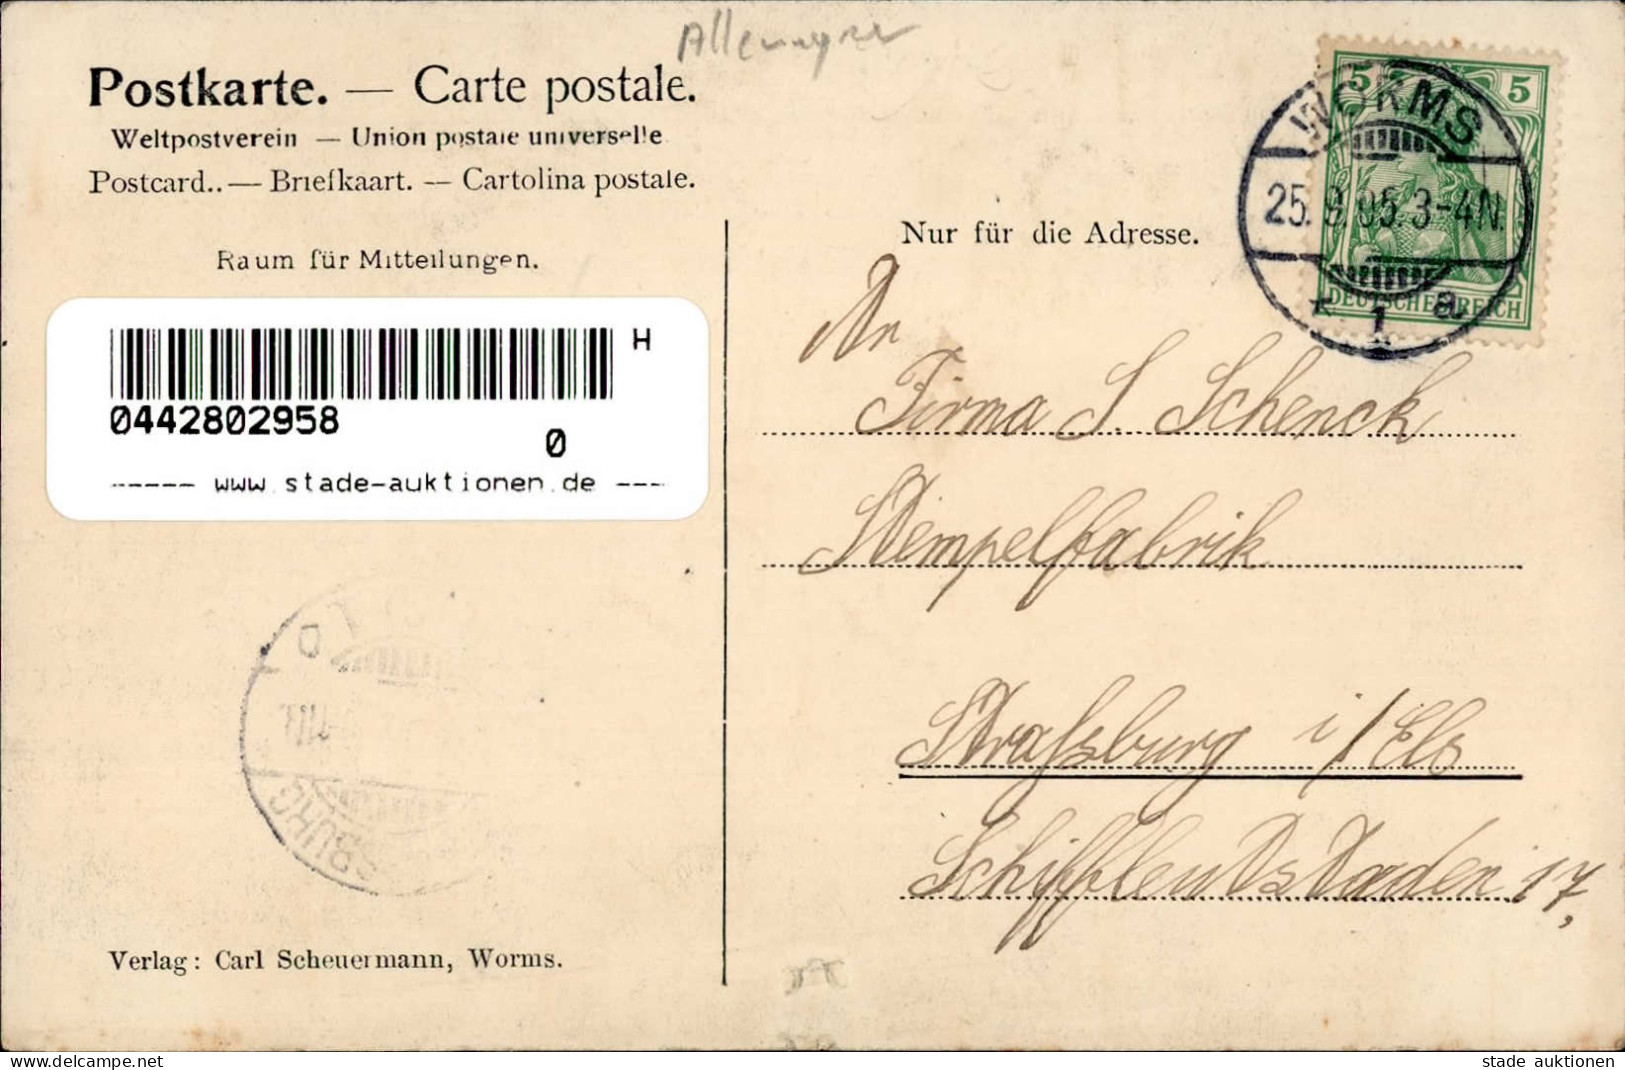 Allemagne
Postkarte. — Carte postale.
Weltpostverein — Union postale universelle
Postcard.. — Briefkaart. — Cartolina postale.
Raum für Mitteilungen.
H
0442802958
0
----- www.stade-auktionen.de ---
Nur für die Adresse.
5 5
DEUTSCHES REICH
WORMS
25.9.05.3-4N.
* 1 a
An
Firma S. Schenck
Stempelfabrik
Straßburg i/Els
Schiffleutstaden 17,
SBURG
Verlag: Carl Scheuermann, Worms.
https://www.ak-ansichtskarten.de
stade auktionen